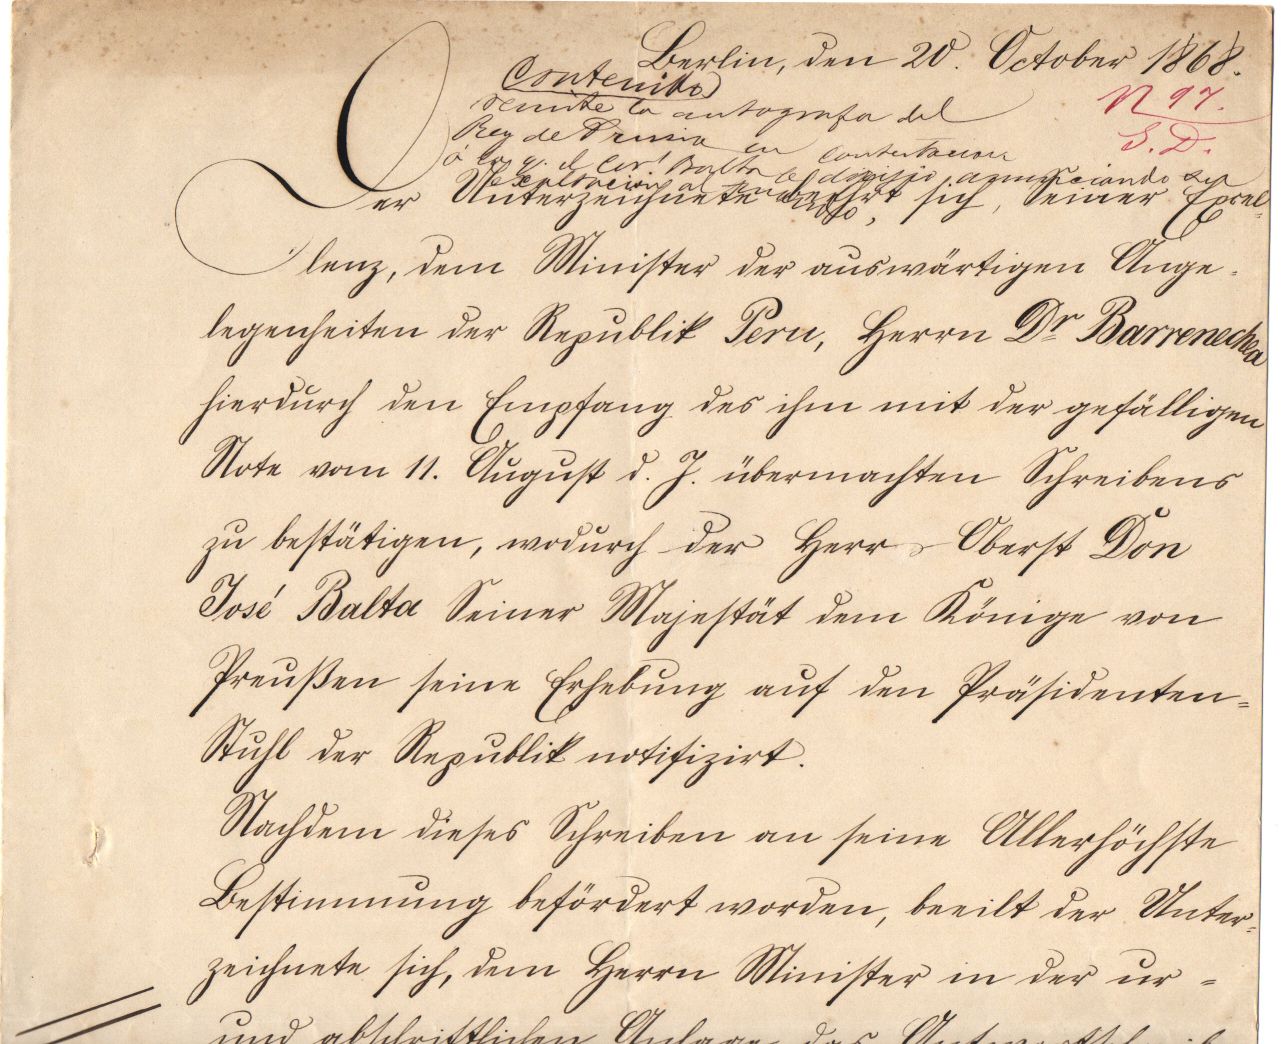 Berlin, den 20. October 1868.
Contenido
N 97.
S. D.
remite la autografa del
Rey de Prusia en contestacion
á la q. el Cor.l Balta le dirijio anunciando su
exaltacion al
Der Unterzeichnete beehrt sich, Seiner Excel-
lenz, dem Minister der auswärtigen Ange-
legenheiten der Republik Peru, Herrn Dr Barrenechea
hierdurch den Empfang des ihm mit der gefälligen
Note vom 11. August d. J. übermachten Schreibens
zu bestätigen, wodurch der Herr Oberst Don
José Balta Seiner Majestät dem Könige von
Preußen seine Erhebung auf den Präsidenten-
Stuhl der Republik notifizirt.
Nachdem dieses Schreiben an seine Allerhöchste
Bestimmung befördert worden, beeilt der Unter-
zeichnete sich, dem Herrn Minister in der ur-
und abschriftlichen Anlage das